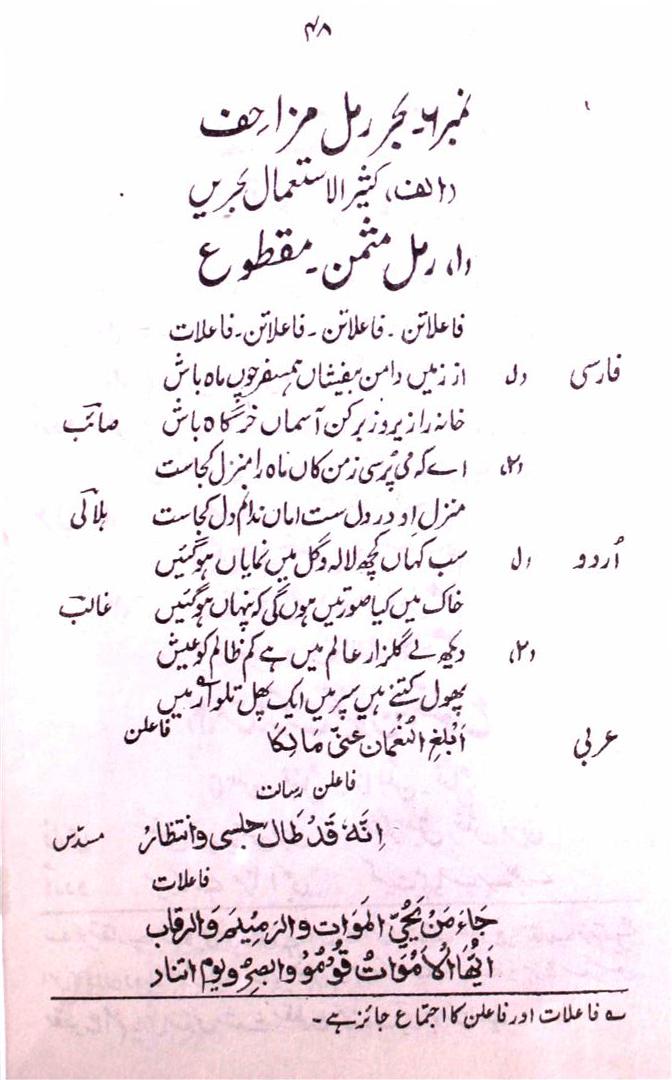 ۴۸
نمبر ۶۔ بحر رمل مزاحف
(الف) کثیر الاستعمال بحریں
(۱) رمل مثمن۔ مقطوع
فاعلاتن۔ فاعلاتن۔ فاعلاتن۔ فاعلات
فارسی (۱) از زمیں دامن بیفشاں ہمسفر چوں ماہ باش
خانہ را زیر و زبر کن آسماں خرگاہ باش صائب
(۲) اے کہ می پرسی ز من کاں ماہ را منزل کجاست
منزل او در دل ست اماں ندانم دل کجاست ہلاکی
اُردو (۱) سب کہاں کچھ لالہ و گل میں نمایاں ہو گئیں
خاک میں کیا صورتیں ہوں گی کہ پنہاں ہو گئیں غالب
(۲) دیکھ لے گلزار عالم میں ہے کم ظالم کو عیش
پھول کتنے ہیں سپر میں ایک پھل تلوار میں
عربی اَبْلِغِ النُّعْمَانَ عَنِّی مَالِکًا فاعلن
فاعلن رسالت
اِنَّهٗ قَدْ طَالَ حبسی وانتظار مسدّس
فاعلات
جَاءَ مَنْ یُحْیِ المَوَات والرَمِیْم وَالرقاب
اَیُّهَا الْاَمْوَاتُ قُوْمُوْ وابصِرُوْ یوم التناد
؎ فاعلات اور فاعلن کا اجتماع جائز ہے۔